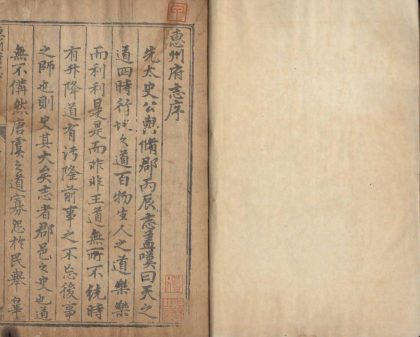 惠州府志序
先太史公與脩郡丙辰志蓋嘆曰天之
道四時行地之道百物生人之道樂樂
而利利是是而非非王道無所不統時
有升降道有汚隆前事之不忘後事
之師也則史其大矣志者郡邑之史也道
無不備然唐虞之道寡怨於民舉皐